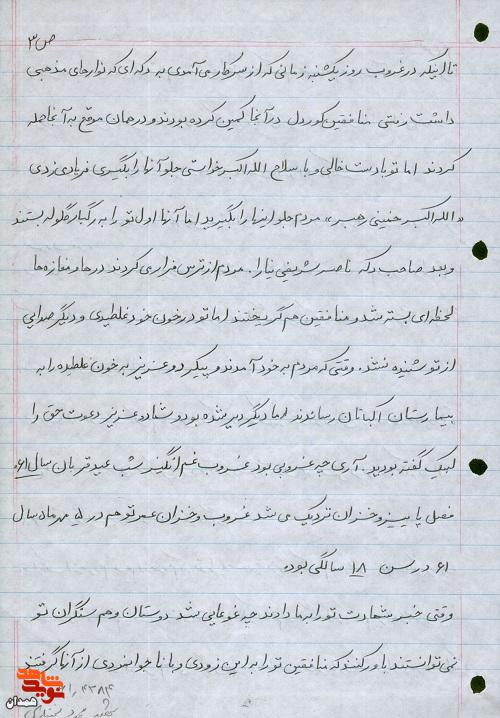 ص ۳
تا اینکه در غروب روز یکشنبه زمانی که از سر کار می آمدی به دکه ای که نوارهای مذهبی
داشت رفتی منافقین کوردل در آنجا کمین کرده بودند و در همان موقع به آنجا حمله
کردند اما تو با دست خالی و با سلاح الله اکبر خواستی جلو آنها را بگیری فریاد زدی
«الله اکبر خمینی رهبر» مردم جلو اینها را بگیرید اما آنها اول تو را به رگبار گلوله بستند
و بعد صاحب دکه ناصر شریفی نیا را. مردم از ترس فرار می کردند درها و مغازه ها
لحظه ای بسته شد و منافقین هم گریختند اما تو در خون خود غلطیدی و دیگر صدایی
از تو شنیده نشد. وقتی که مردم به خود آمدند و پیکر دو عزیز به خون غلطیده را به
بیمارستان اکباتان رساندند اما دیگر دیر شده بود و شما دو عزیز دعوت حق را
لبیک گفته بودید. آری چه غروبی بود غروب غم انگیز شب عید قربان سال ۶۱،
فصل پاییز و خزان نزدیک می شد غروب و خزان عمر تو هم در ۵ مهرماه سال
۶۱ در سن ۱۸ سالگی بوده
وقتی خبر شهادت تو را به ما دادند چه غوغایی شد دوستان و هم سنگران تو
نمی توانستند باور کنند که منافقین تو را به این زودی و با ناجوانمردی از آنها گرفتند
نوید شاهد
همدان